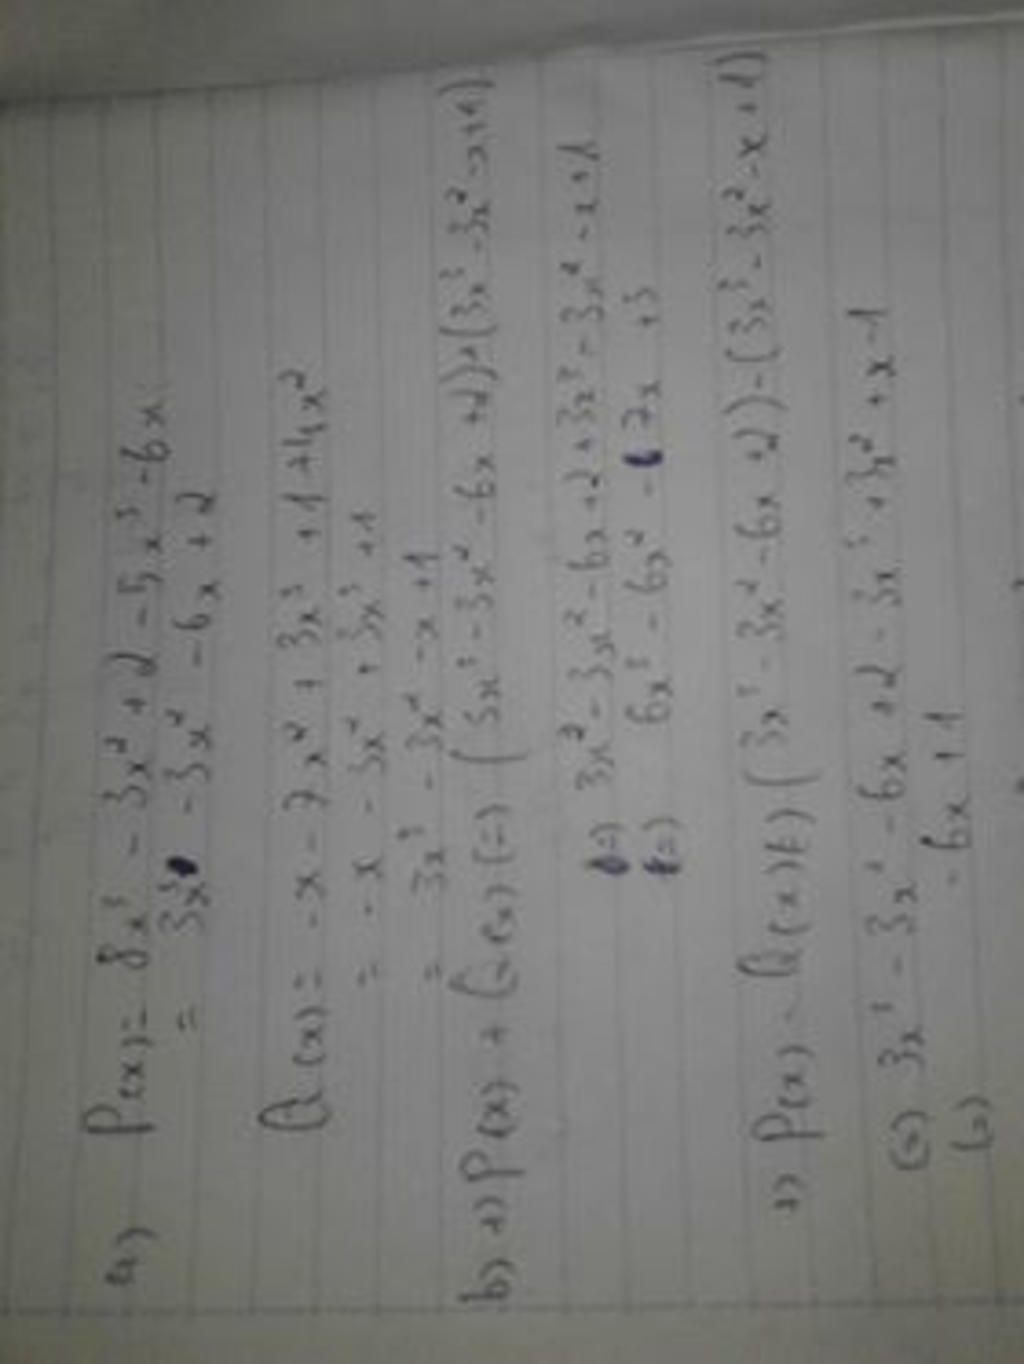 a) P(x) = 8x³ - 3x² + 2 - 5x³ - 6x
= 3x³ - 3x² - 6x + 2
Q(x) = -x - 7x² + 3x³ + 1 + 4x²
= -x - 3x² + 3x³ + 1
= 3x³ - 3x² - x + 1
b) +) P(x) + Q(x) (=) (3x³ - 3x² - 6x + 2) + (3x³ - 3x² - x + 1)
(=) 3x² - 3x² - 6x + 2 + 3x³ - 3x² - x + 1
(=) 6x³ - 6x² - 7x + 3
+) P(x) - Q(x) (=) (3x³ - 3x² - 6x + 2) - (3x³ - 3x² - x + 1)
(=) 3x³ - 3x² - 6x + 2 - 3x³ + 3x² + x - 1
(=) - 6x + 1